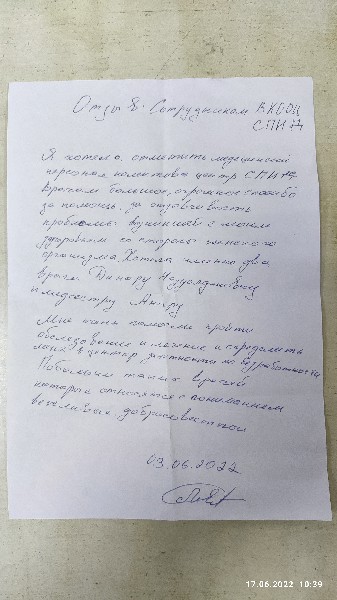 Отзыв: Сотрудникам ВКООЦ
СПИД
Я хотела отметить медицинский
персонал коллектива центр СПИД
Врачам большое, огромное спасибо
за помощь, за отзывчивость
проблемы возникшие с моим
здоровьем со стороны женского
организма. Хотела именно два
врача. Динару
и медсестру
Мне очень помогли пройти
обследование и лечение и
в центр,
Побольше таких врачей
которые относятся с пониманием
вежливых, добросовестной
03.06.2022
17.06.2022 10:39